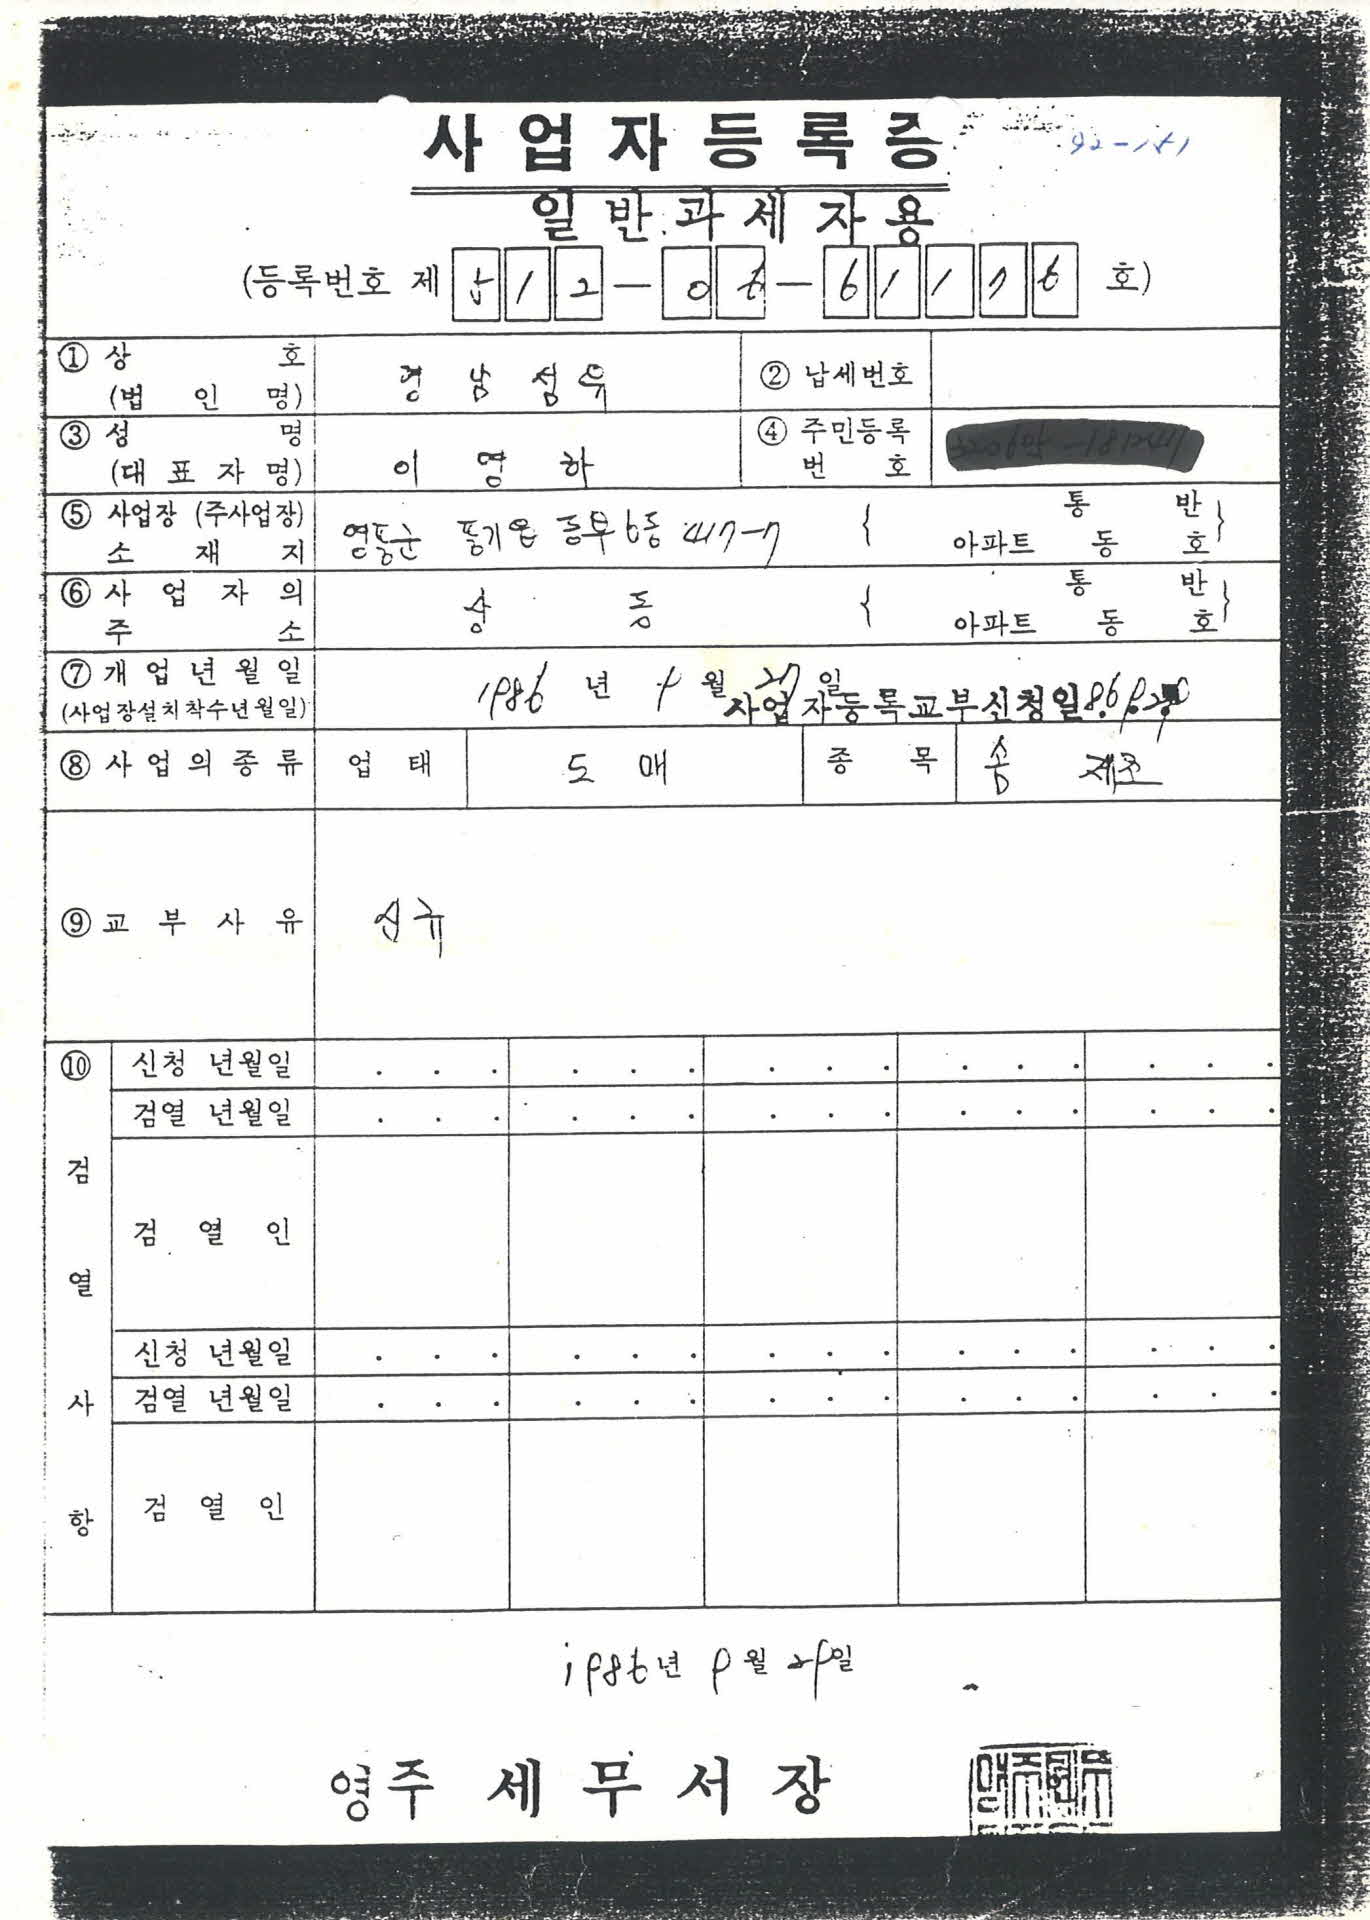 사업자등록증
92-151
일반과세자용
(등록번호 제 512-06-61176 호)
① 상 호
(법 인 명)
영남섬유
② 납세번호
③ 성 명
(대 표 자 명)
이영하
④ 주민등록
번 호
⑤ 사업장 (주사업장)
소 재 지
영풍군 풍기읍 동부6동 417-7
{ 통 반 }
아파트 동 호
⑥ 사 업 자 의
주 소
상 동
{ 통 반 }
아파트 동 호
⑦ 개 업 년 월 일
(사업장설치착수년월일)
1986 년 9 월 27 일
사업자등록교부신청일
⑧ 사 업 의 종 류
업 태
도 매
종 목
제조
⑨ 교 부 사 유
신규
⑩ 검 열 사 항
신청 년월일 . . . . . . . . . . . . . . .
검열 년월일 . . . . . . . . . . . . . . .
검 열 인
신청 년월일 . . . . . . . . . . . . . . .
검열 년월일 . . . . . . . . . . . . . . .
검 열 인
1986년 9월 29일
영주 세무서장